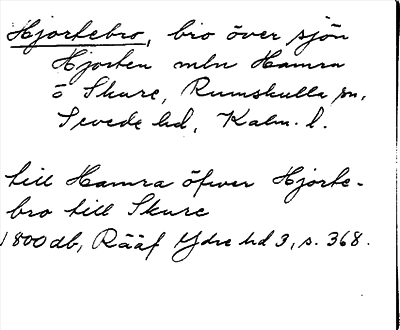 Hjortebro, bro över sjön
Hjorten mln Hamra
o Skure, Rumskulla sn,
Sevede hd, Kalm. l.
till Hamra öfwer Hjorte-
bro till Skure
1800db, Rääf Ydre hd 3, s. 368.